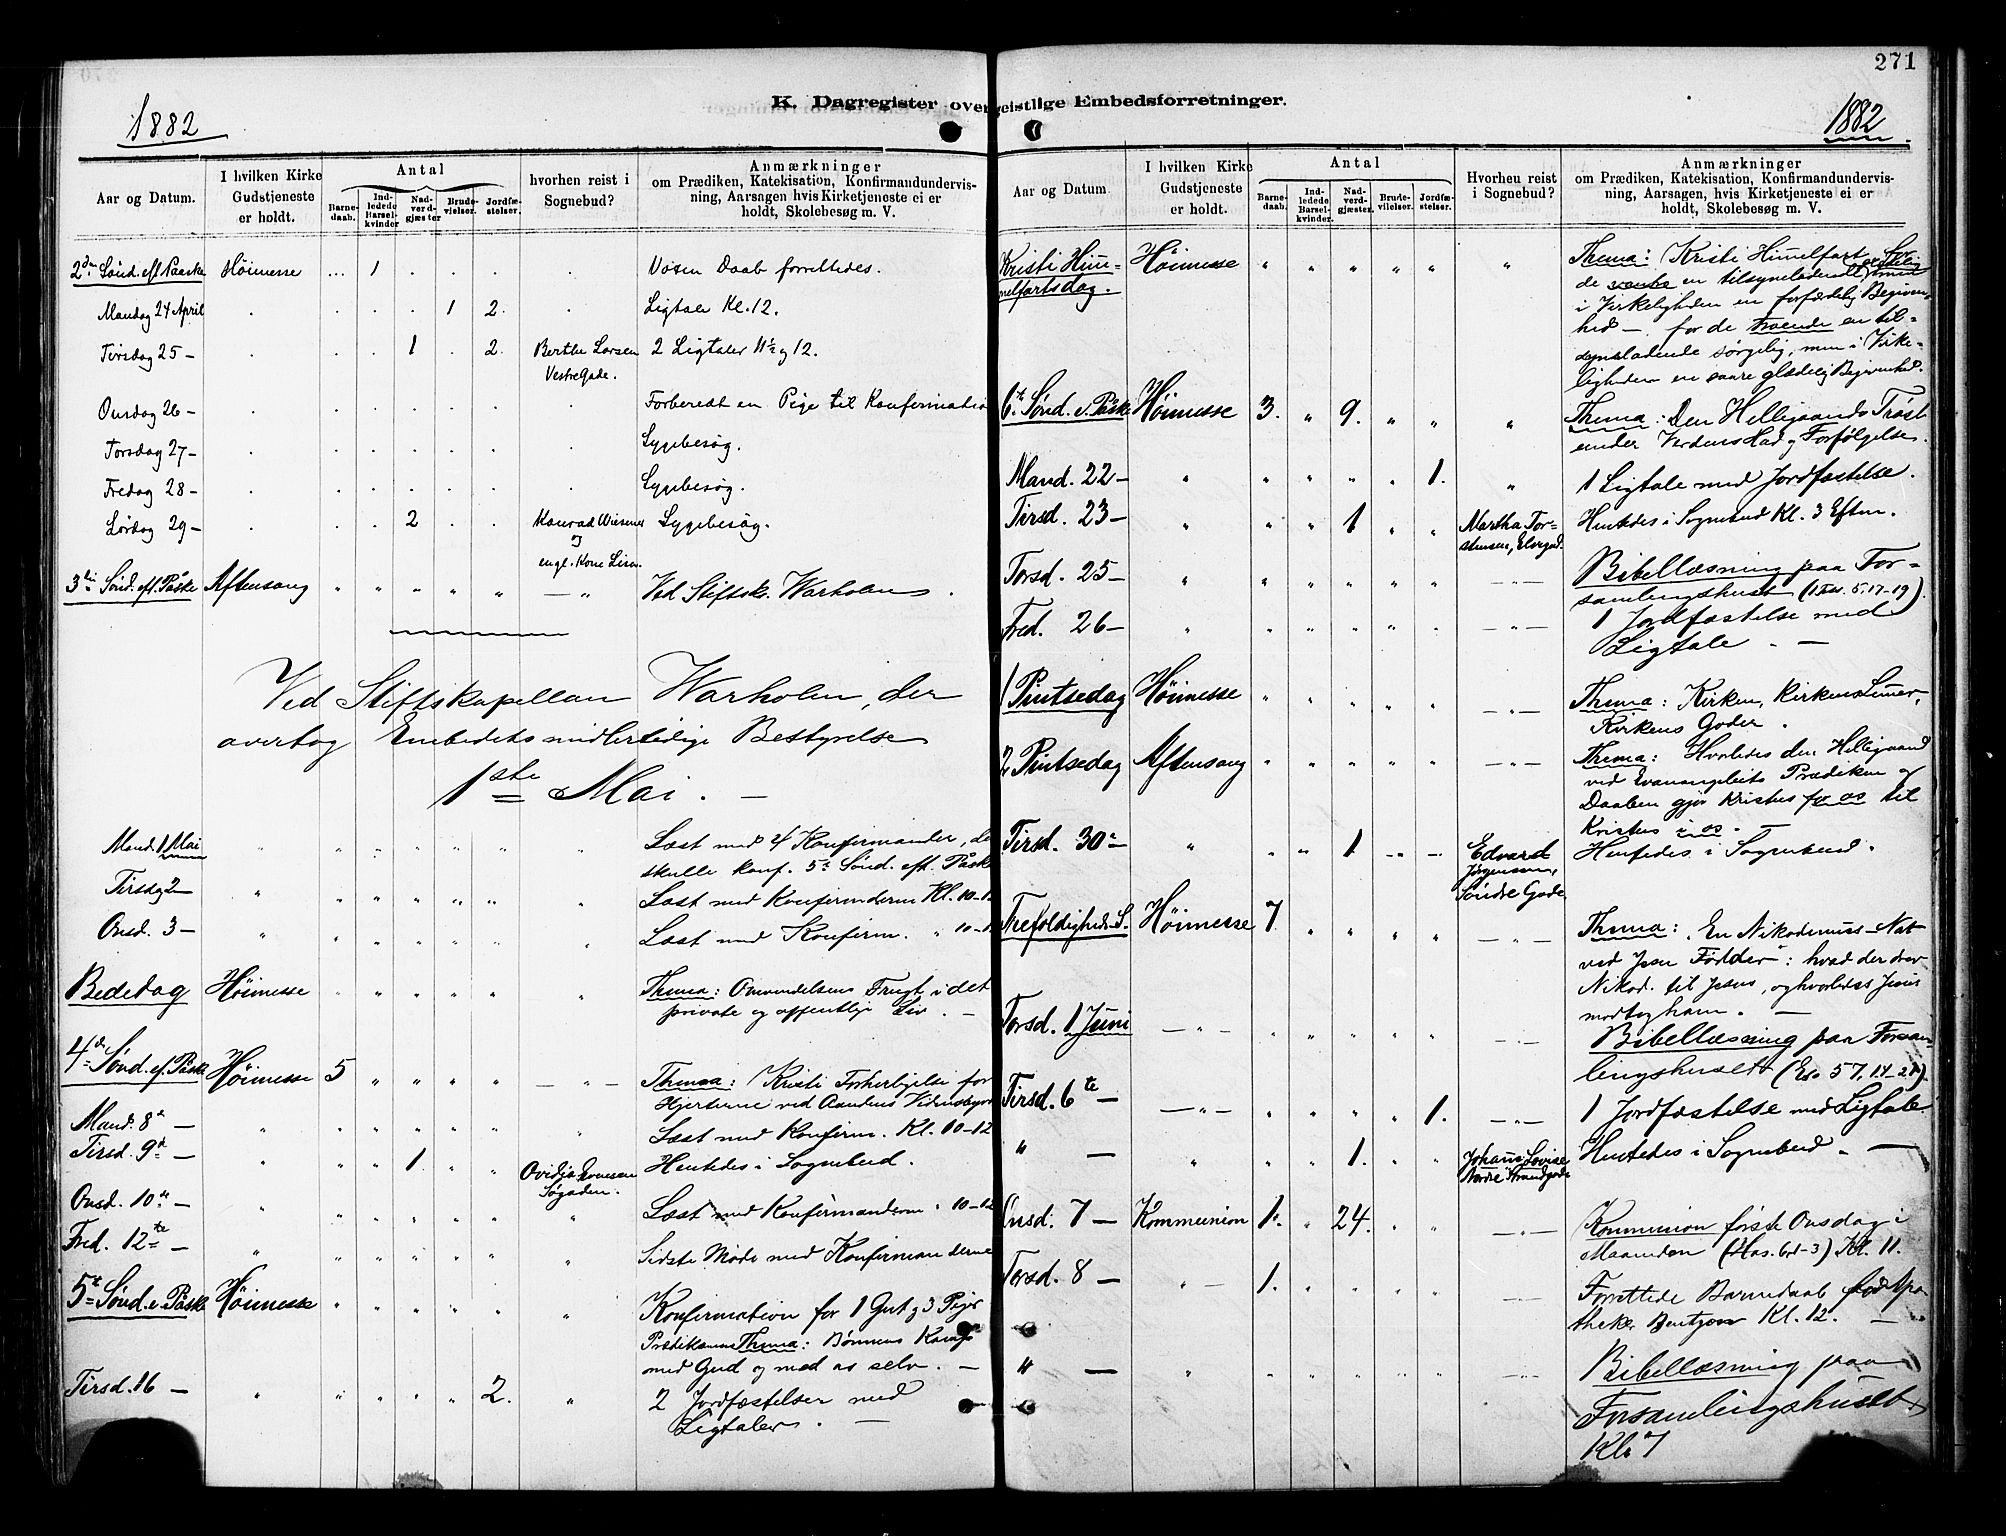 271
K. Dagregister over geistlige Embedsforretninger.
1882
Aar og Datum.
I hvilken Kirke
Gudstjeneste
er holdt.
Antal
Barne-
daab.
Ind-
ledede
Barsel-
kvinder
Nad-
verd-
gjæster
Brude-
vielser.
Jordfæ-
stelser.
hvorhen reist i
Sognebud?
Anmærkninger
om Prædiken, Katekisation, Konfirmandundervis-
ning, Aarsagen hvis Kirketjeneste ei er
holdt, Skolebesøg m. V.
2den Sønd. eft. Paaske Høimesse ... 1 . . . . Voxen Daab forrettedes.
Mandag 24 April . . . . 1 2. . Ligtaler Kl. 12.
Tirsdag 25 – . . . 1 . 2. Berthe Larsen 2 Ligtaler 11½ og 12.
Vestre Gade.
Onsdag 26 – . . . . . . . Forberedt en Pige til Konfirmation
Torsdag 27 – . . . . . . . Sygebesøg.
Fredag 28 – . . . . . . . Sygebesøg.
Lørdag 29 – . . . 2 . . Konrad Sygebesøg.
og
3die Sønd. eft. Påske Aftensang " " " " " — " Ved Stiftsk. Warholm.
Ved Stiftskapellan Warholm, der
overtog Embedets midlertidige Bestyrelse
1ste Mai. —
Mand. 1 Mai " " " " " " " Læst med 4 Konfirmander, der
skulle konf. 5te Sønd. eft. Påske
Tirsdag 2 — " " " " " " " Læst med Konfirmderne Kl. 10-12
Onsd. 3 — " " " " " " " Læst med Konfirm. " 10-12
Bededag Høimesse " " " " " " Thema: Omvendelsens Frugt i det
private og offentlige Liv. —
4de Sønd. ef. Påske Høimesse 5 " " " " — " — Thema: Kristi Forherligelse for
Hjerterne ved Aandens Vidnesbyrd
Mand. 8de — " " " " " " Læst med Konfirm. Kl. 10-12
Tirsd. 9de — " " " 1. " " Ovidia Evensen Hentedes i Sognebud.
Søgaden.
Onsd. 10de — " " " " " " " Læst med Konfirmanderne " 10-12
Fred. 12te — " " " " " " " Sidste Møde med Konfirmanderne
5te Sønd. e. Påske Høimesse " " " " " " Konfirmation for 1 Gut og 3 Piger
Prædikenens Thema: Bønnens Kamp
med Gud og med os selv. —
Tirsd. 16 — " " " " " 2. " 2 Jordfæstelser med
Ligtaler. —
1882
Aar og Datum
I hvilken Kirke
Gudstjeneste
er holdt.
Antal
Barne-
daab.
Ind-
ledede
Barsel-
kvinder.
Nad-
verd-
gjæster.
Brude-
vielser.
Jordfæ-
stelser.
Hvorhen reist
i Sognebud?
Anmærkninger
om Prædiken, Katekisation, Konfirmandundervis-
ning, Aarsagen, hvis Kirketjeneste ei er
holdt, Skolebesøg m. V.
Kristi Him- Høimesse " " " " " " Thema: Kristi Himmelfart
melfartsdag. de en tilsyneladende
i Virkeligheden en forfædelig Begiven-
hed — for de troende en til-
syneladende sørgelig, men i Virke-
ligheden en saare glædelig Begivenhed.
6te Sønd. e. Påske Høimesse 3. " 9. " " " Thema: Den Helligaands Trøst
under Verdens Had og Forfølgelse.
Mand. 22 — " " " " " 1. " 1 Ligtale med Jordfæstelse.
Tirsd. 23 — " " " 1 " " Martha Tor- Hentedes i Sognebud Kl. 3 Efterm.
stensen, Elvegad.
Torsd. 25 — " " " " " " — " — Bibellæsning paa For-
samlingshuset (1 5. 17-19).
Fred. 26 — " " " " " " — " — 1 Jordfæstelse med
Ligtale. —
1 Pintsedag Høimesse " " " " " — " — Thema: Kirken, Kirkens Lemmer,
Kirkens Goder.
2 Pintsedag Aftensang " " " " " — " — Thema: Hvorledes den Helligaand
ved Evangeliets Prædiken og
Daaben gjør Kristus for os til
Kristus i os. —
Tirsd. 30te " " " 1 " " Edvard Hentedes i Sognebud.
Jørgensen,
Søndre Gade
Trefoldigheds-S. Høimesse 7 " " " " — " — Thema: En Nikodemus-Nat
ved Jesu Fødder: hvad der drev
Nikod. til Jesus, og hvorledes Jesus
modtog ham. —
Torsd. 1 Juni — " — " " " " " — " — Bibellæsning paa Forsam-
lingshuset (Es. 57, 14-21).
Tirsd. 6te — — " — " " " " 1. — " — 1 Jordfæstelse med Ligtale
" — " " " 1. " " Johan Lovise Hentedes i Sognebud. —
Nordre Strandgade
Onsd. 7 — Kommunion 1. " 24. " " — " — Kommunion første Onsdag i
Maaneden (Hos. 6, 1-3) Kl. 11.
Torsd. 8 — " — 1. " " " " — " — Forrettede Barnedaab hos Apo-
theker Bentzon Kl. 12. —
" — " " " " " " — " — Bibellæsning paa
Forsamlingshuset
Kl. 7